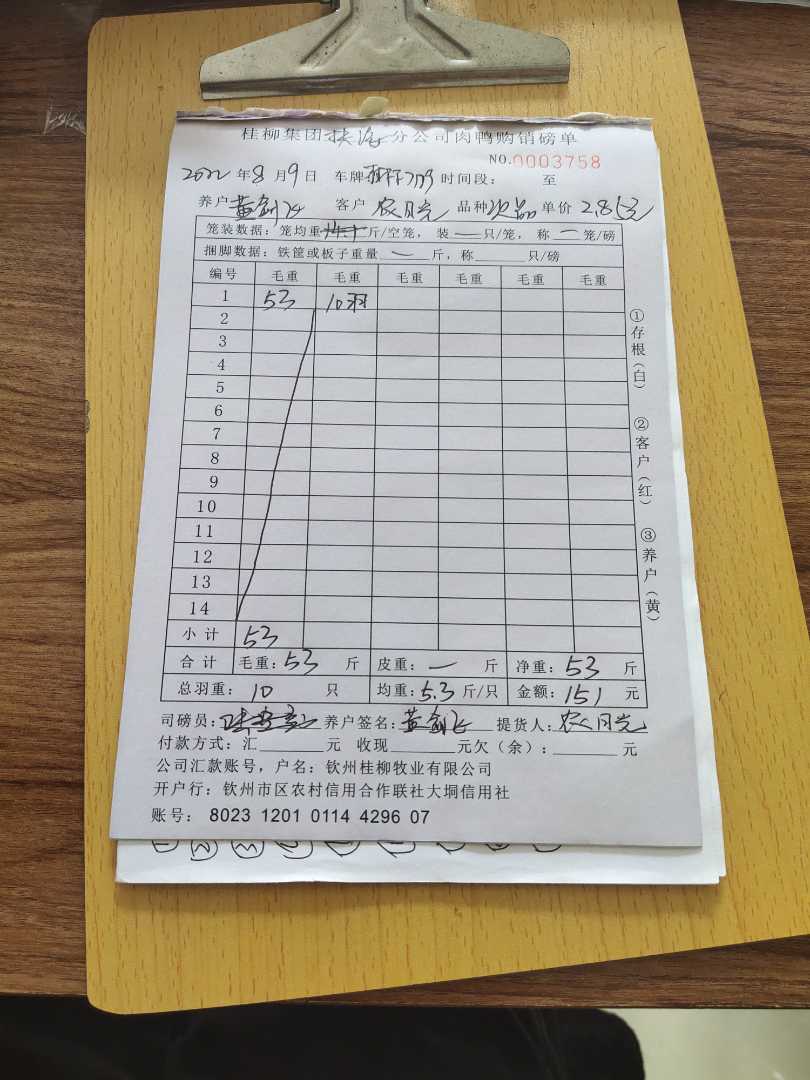 桂柳集团 分公司肉鸭购销磅单
NO.0003758
2022年8月9日 车牌 时间段: 至
养户黄剑飞 客户 农月光 品种次品 单价 2.85元
笼装数据: 笼均重 斤/空笼, 装一只/笼, 称一笼/磅
捆脚数据: 铁筐或板子重量 一 斤, 称 只/磅
编号 毛重 毛重 毛重 毛重 毛重 毛重
1 53 10羽
2
3
4
5
6
7
8
9
10
11
12
13
14
小计 53
合计 毛重: 53 斤 皮重: 一 斤 净重: 53 斤
总羽重: 10 只 均重: 5.3 斤/只 金额: 151 元
司磅员: 养户签名: 黄剑飞 提货人: 农月光
付款方式: 汇 元 收现 元欠(余): 元
公司汇款账号, 户名: 钦州桂柳牧业有限公司
开户行: 钦州市区农村信用合作联社大垌信用社
账号: 8023 1201 0114 4296 07
①存根(白)
②客户(红)
③养户(黄)